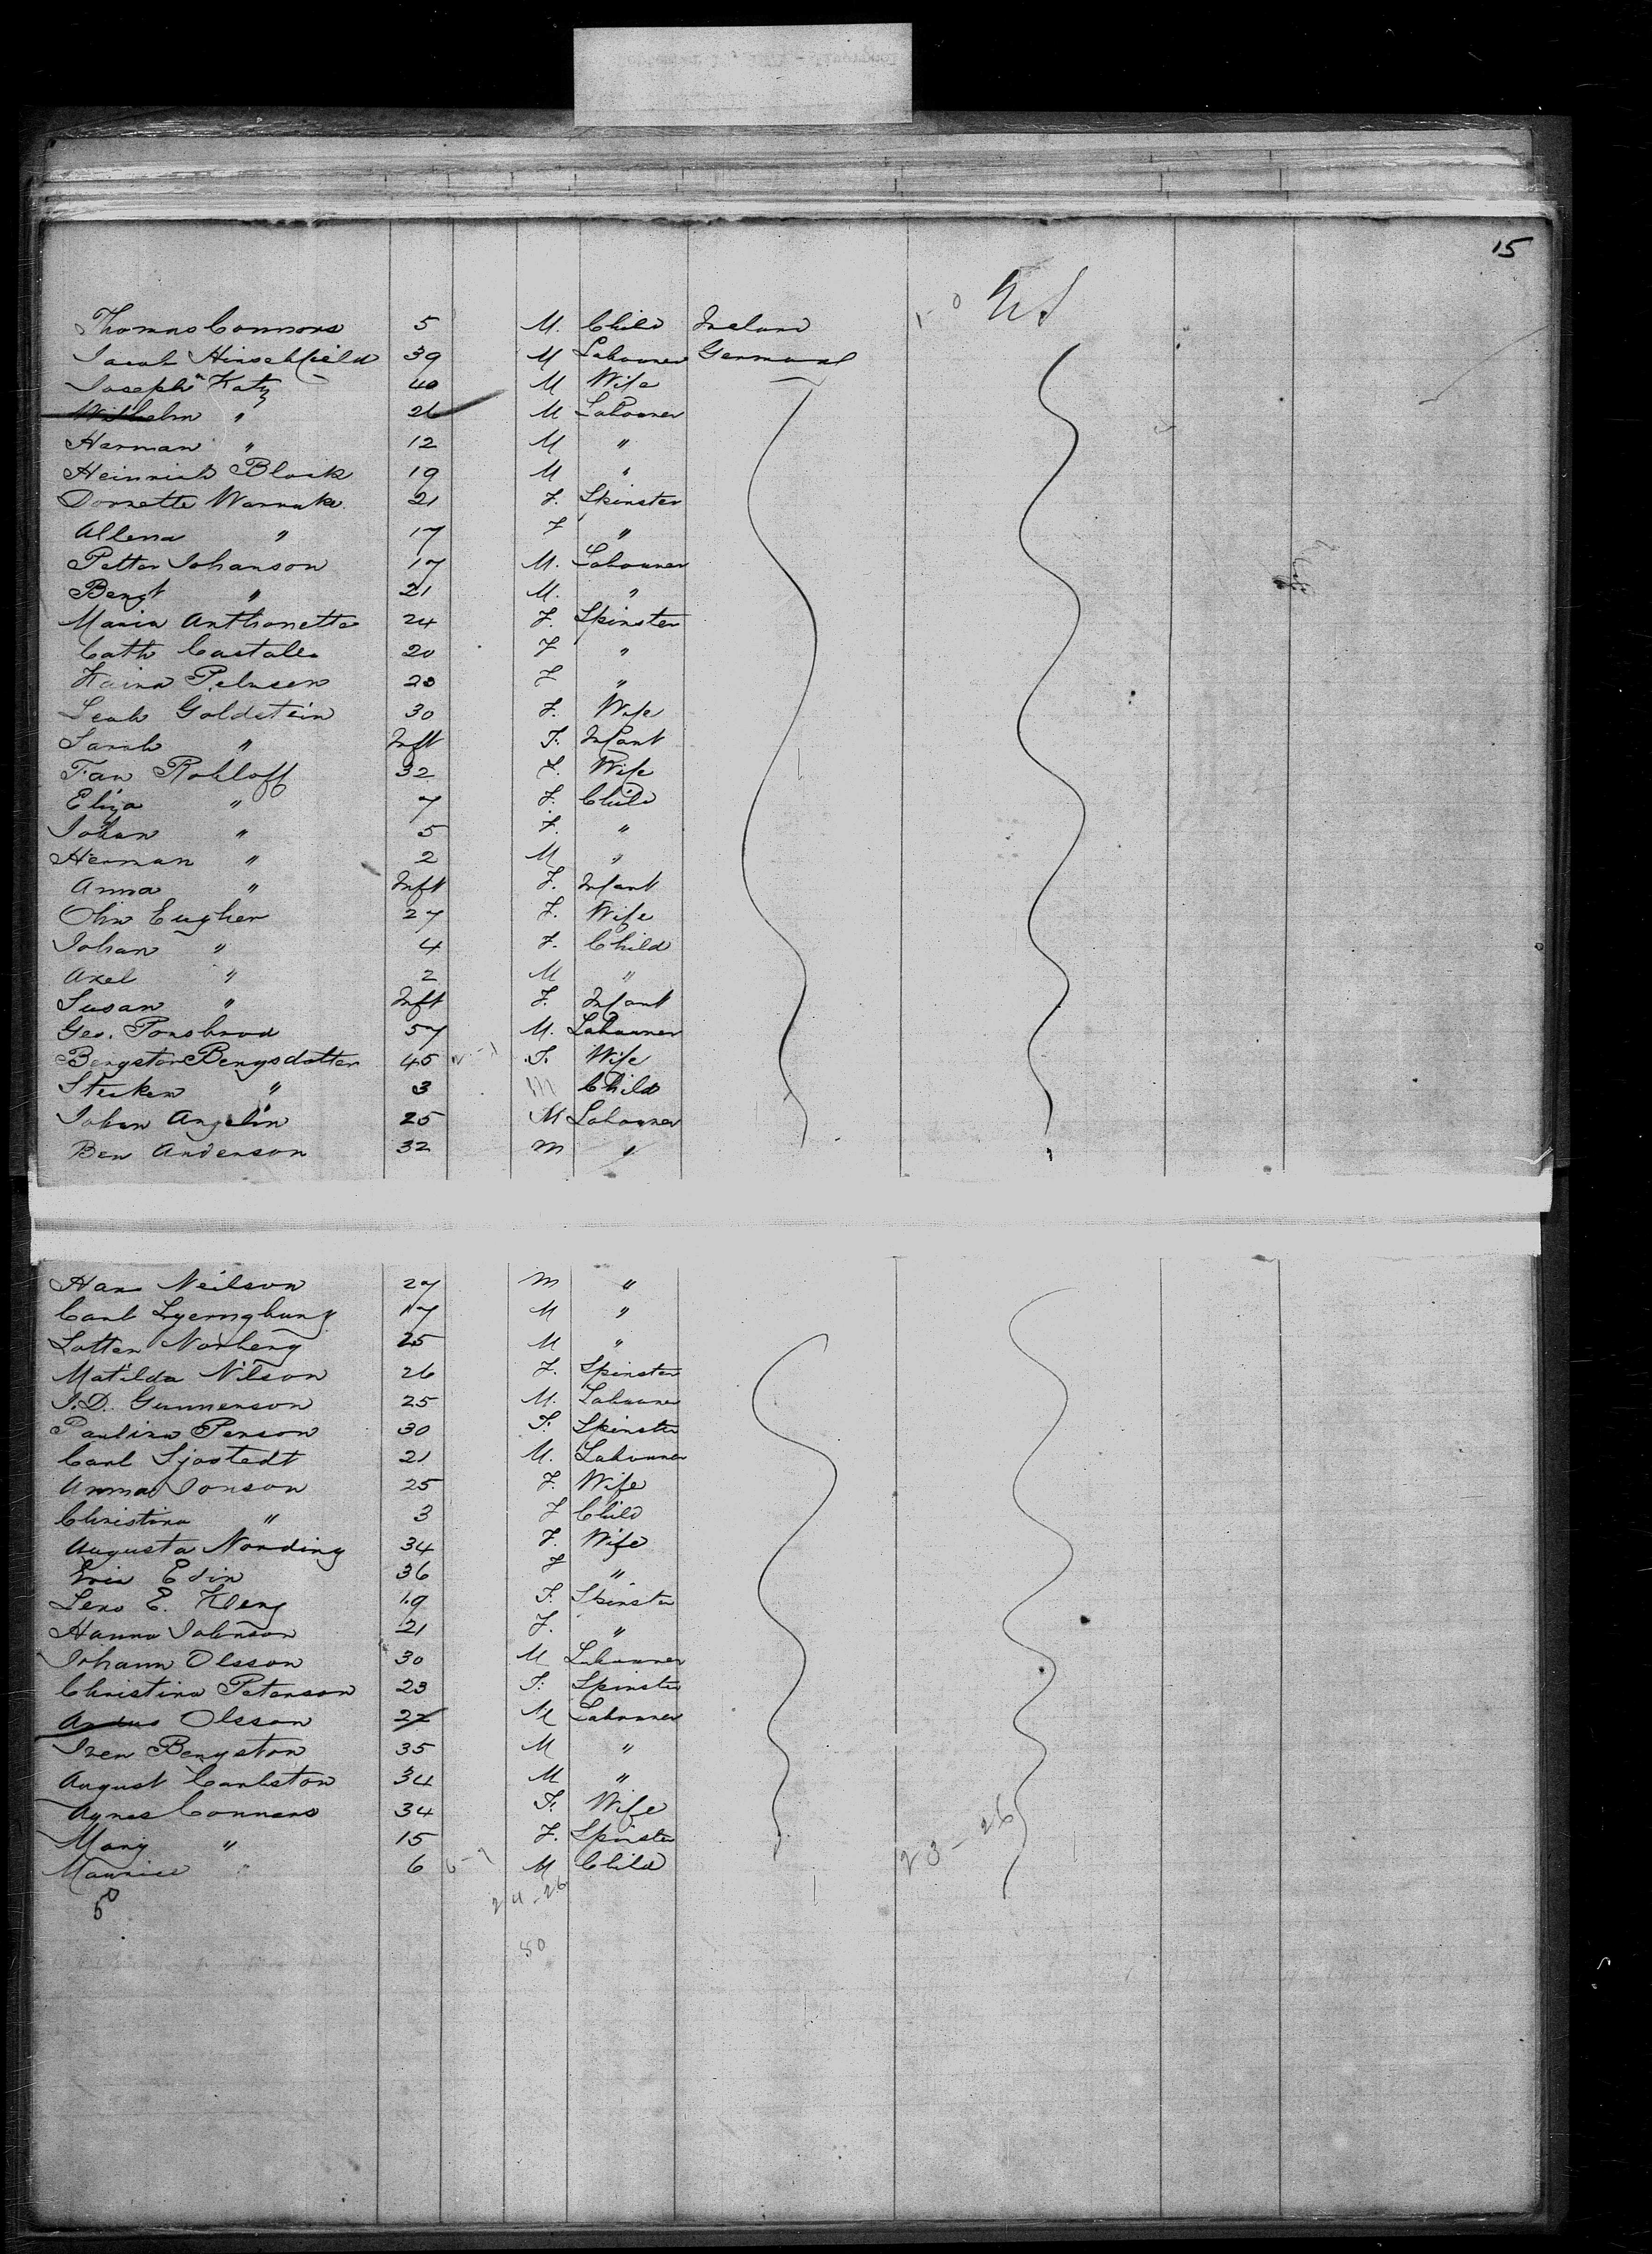 15
U S
Thomas Connors 5 M. Child Ireland
Jacob Hirschfield 39 M Labourer Germany
Joseph Katz 40 M Wife
Wilhelm " 26 M Labourer
Harman " 12 M "
Heinrich Block 19 M "
Dornette Warnake 21 F. Spinster
Allena " 17 F "
Petter Johanson 17 M. Labourer
Bengt " 21 M. "
Maria Anthonette 24 F. Spinster
Cath Castales 20 F "
20 F "
Leah Goldstein 30 F. Wife
Sarah " Inft F. Infant
Fan Rohloff 32 F. Wife
Eliza " 7 F. Child
Johan " 5 F. "
Herman " 2 M "
Anna " Inft F. Infant
27 F. Wife
Johan " 4 F. Child
Axel " 2 M "
Susan " Inft F. Infant
Geo. 57 M. Labourer
Bengston Bengsdotter 45 F. Wife
" 3 M Child
Johan Angelin 25 M Labourer
Ben Anderson 32 M "
Hans Neilson 27 M "
Carl 17 M "
Lotten Norberg 25 M "
Matilda Nilson 26 F. Spinster
J.D. Gunnerson 25 M. Labourer
Paulina Person 30 F. Spinster
Carl Sjostedt 21 M. Labourer
Anna Jonson 25 F. Wife
Christina " 3 F Child
Augusta Nording 34 F. Wife
Edin 36 F "
E. 19 F. Spinster
Hanna Johnson 21 F. "
Johann Olsson 30 M Labourer
Christina Peterson 23 F. Spinster
Andus Olsson 22 M Labourer
Iven Bengston 35 M "
August Carlston 34 M "
Agnes Connors 34 F. Wife
Mary " 15 F. Spinster
Maurice " 6 M Child
24-26
23-26
50
50